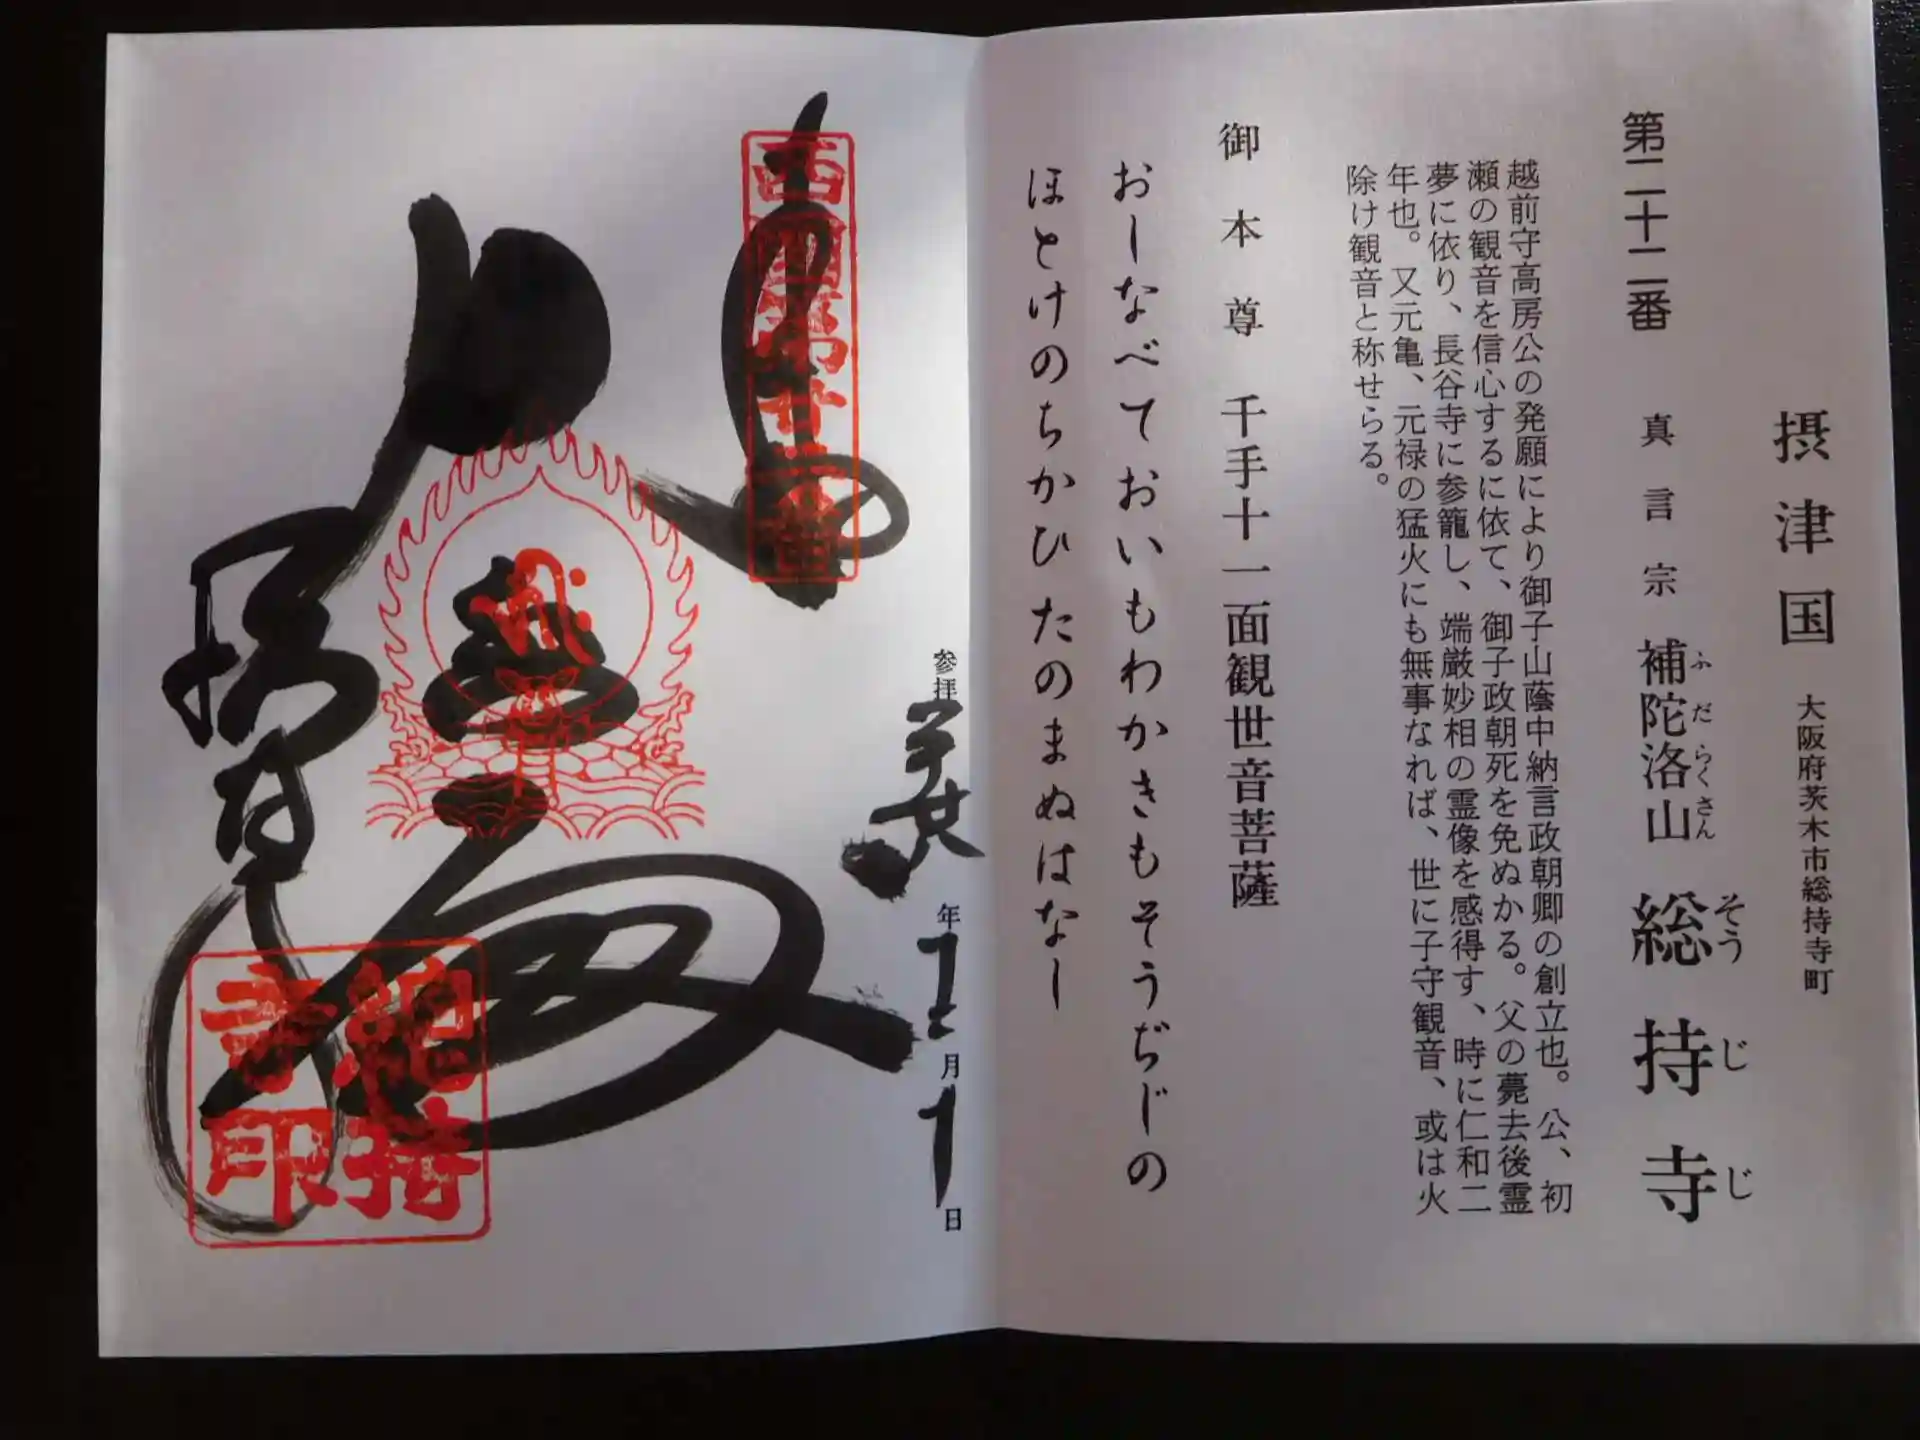 摂津国 大阪府茨木市総持寺町
第二十二番 真言宗 補陀洛山 総持寺
ふだらくさん そうじじ
越前守高房公の発願により御子山蔭中納言政朝卿の創立也。公、初
瀬の観音を信心するに依て、御子政朝死を免ぬかる。父の薨去後霊
夢に依り、長谷寺に参籠し、端厳妙相の霊像を感得す、時に仁和二
年也。又元亀、元禄の猛火にも無事なれば、世に子守観音、或は火
除け観音と称せらる。
御本尊 千手十一面観世音菩薩
おしなべておいもわかきもそうぢじの
ほとけのちかひたのまぬはなし
参拝 年 月 日
西国第廿二番
総持
寺印